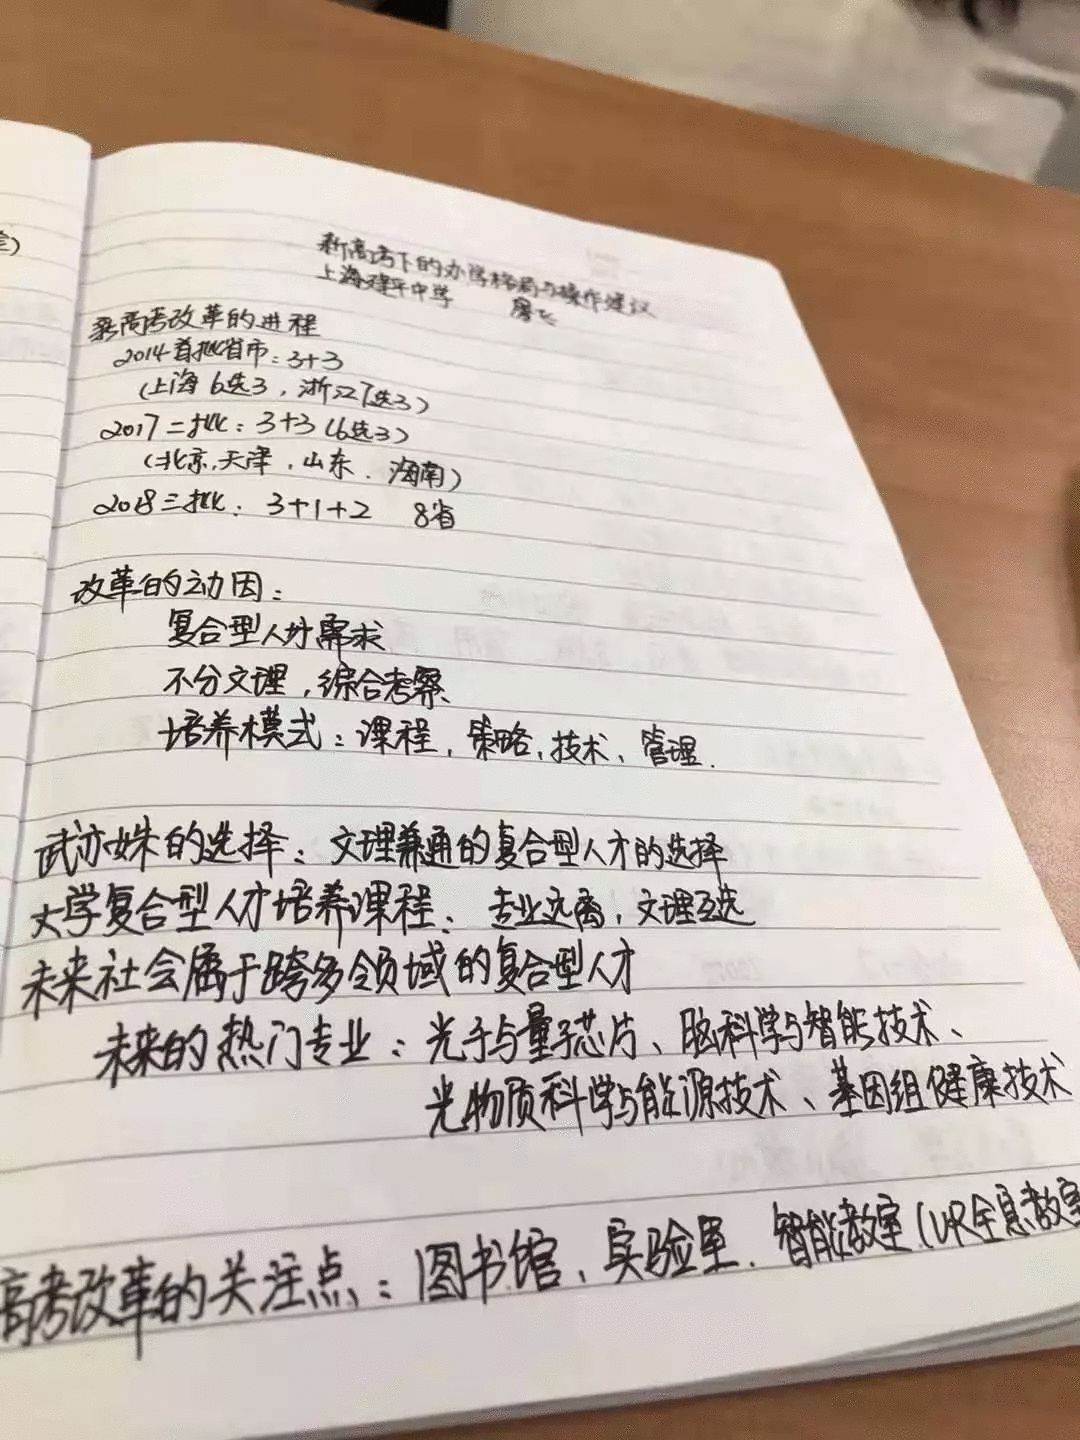 新高考下的办学格局与操作建议
上海建平中学 廖飞
新高考改革的进程
2014首批省市：3+3
(上海6选3，浙江7选3)
2017二批：3+3(6选3)
(北京,天津,山东.海南)
2018三批：3+1+2 8省
改革的动因：
复合型人才需求
不分文理,综合考察
培养模式：课程,策略,技术、管理.
武亦姝的选择：文理兼通的复合型人才的选择
大学复合型人才培养课程：专业远离,文理互选
未来社会属于跨多领域的复合型人才
未来的热门专业：光子与量子芯片、脑科学与智能技术、
光物质科学与能源技术、基因组健康技术
高考改革的关注点：图书馆、实验室.智能教室(VR全息教室